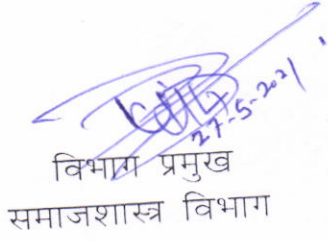 27-5-2021
विभाग प्रमुख
समाजशास्त्र विभाग